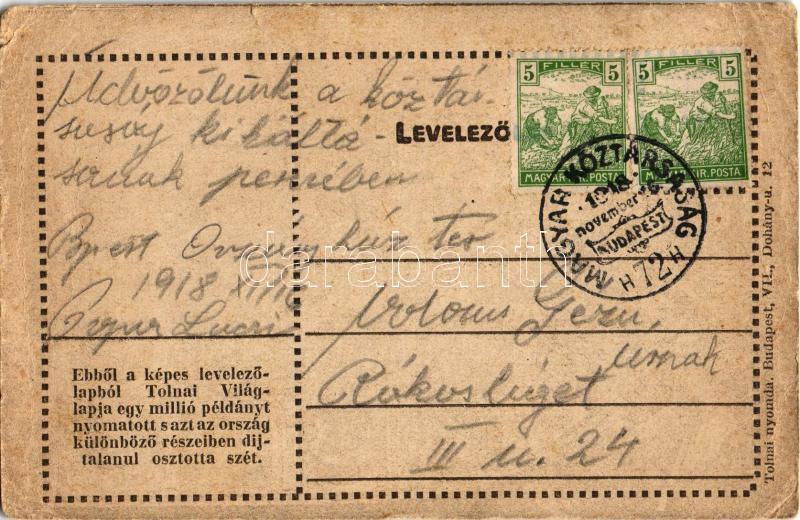 Üdvözölünk a köztár-
saság kikáltá-
sának percében
Bpest Országház tér
1918 XI/16
LEVELEZŐ
5 FILLÉR 5
MAGYAR KIR. POSTA
5 FILLÉR 5
MAGYAR KIR. POSTA
MAGYAR KÖZTÁRSASÁG
1918
november 16
BUDAPEST
72
úrnak
Rákosliget
III u. 24
Ebből a képes levelező-
lapból Tolnai Világ-
lapja egy millió példányt
nyomatott s azt az ország
különböző részeiben díj-
talanul osztotta szét.
Tolnai nyomda. Budapest, VII., Dohány-u. 12
darabanth.com